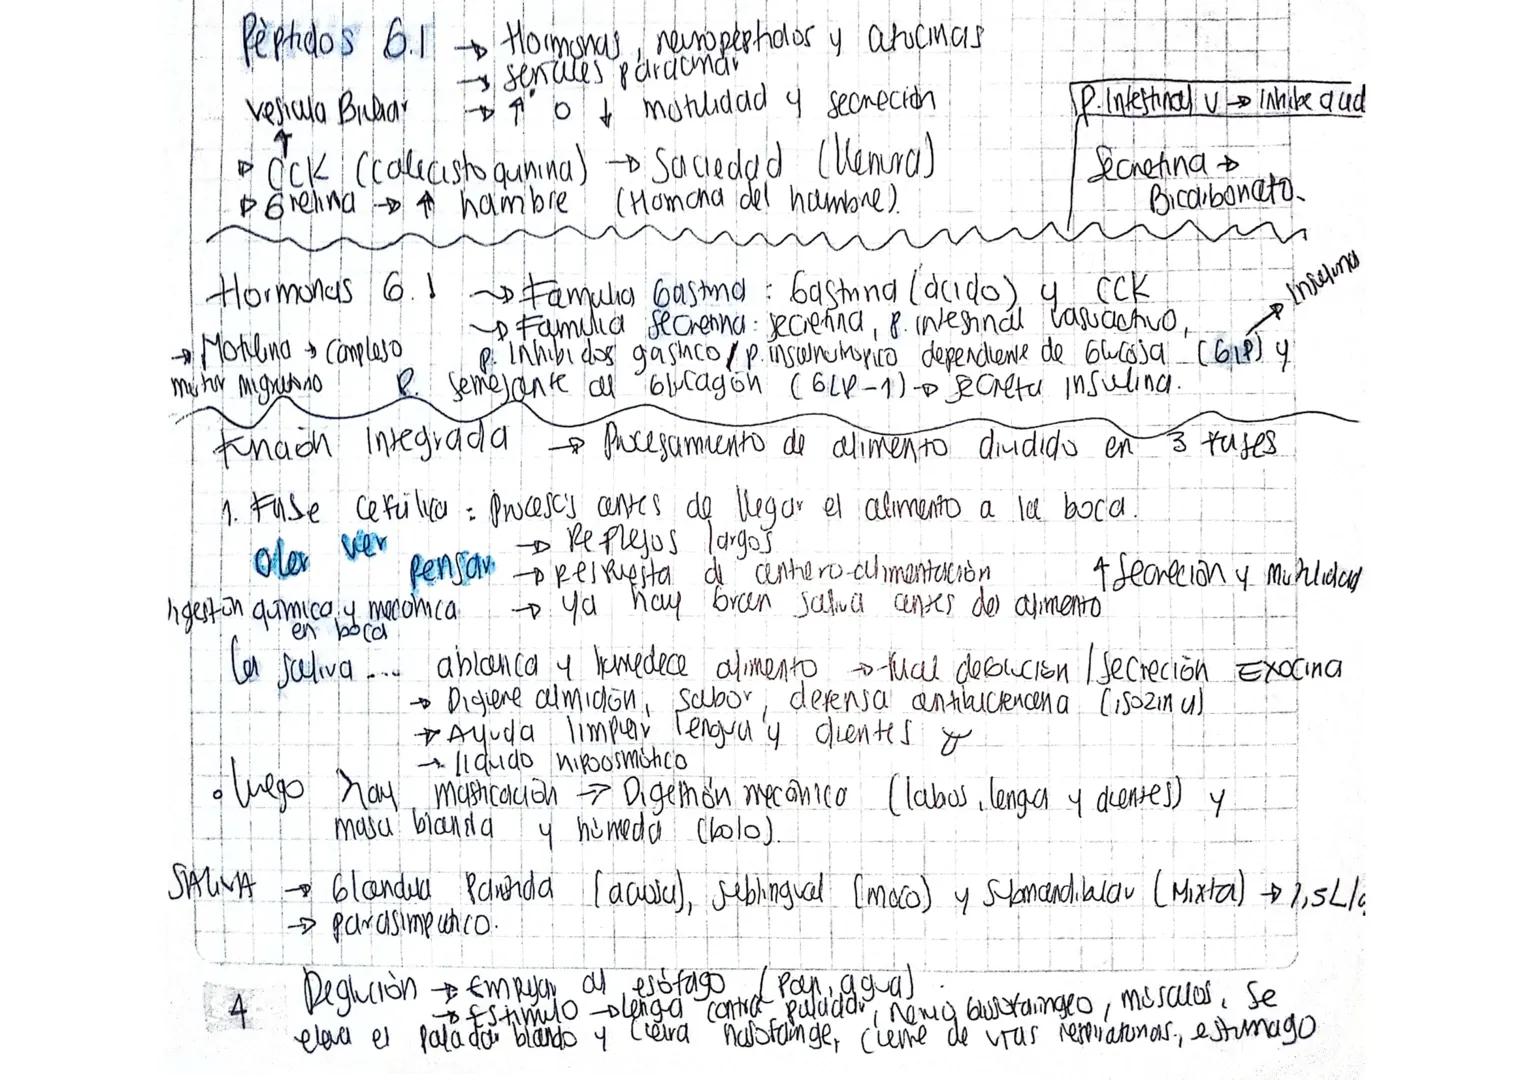 Péptidos G.I → Hormonas, neuropéptidos y citocinas
→ señales paracrinar
Vesicula Biliar → ↑ o ↓ motilidad y secreción
P. Intestinal V → Inhibe acid
↑
CCK (colecistoquinina) → Saciedad (llenura)
Secretina →
Bicarbonato.
Grelina → ↑ hambre (Hormona del hambre).
Hormonas G.I → Familia Gastrina: Gastrina (ácido) y CCK
→ Insulina
→ Familia secretina: secretina, p. intestinal vasoactivo,
→ Motilina → Complejo
motor migratorio
p. Inhibidos gástrico / p. insulinotropico dependiente de Glucosa (GIP) y
P. semejante al Glucagón (GLP-1) → secreta insulina.
Función Integrada → Procesamiento de alimento dividido en 3 fases
1. Fase Cefálica: procesos antes de llegar el alimento a la boca.
oler ver pensar
→ Reflejos largos
→ respuesta de centero-alimentación ↑ secreción y Motilidad
→ ya hay bran saliva antes del alimento
Digestión química y mecánica
en boca
La saliva ... ablanda y humedece alimento → deglución / Secreción Exocrina
→ Digiere almidón, sabor, defensa antibacteriana
→ Ayuda limpiar lengua y dientes
→ liquido hiposmótico
• luego hay masticación → Digestión mecánica (labios, lengua y dientes) y
masa blanda y húmeda (bolo).
SALIVA → Glandula Parótida (acuosa), sublingual (moco) y submandibular (Mixta) → 1,5L/d
→ parasimpatico.
Deglución → Empujar al esófago (pan, agua).
→ Estimulo → lengua contra paladar, nervio glosofaringeo, músculos, se
eleva el paladar blando y cierra nasofaringe, cierre de vias respiratorias, estomago
4